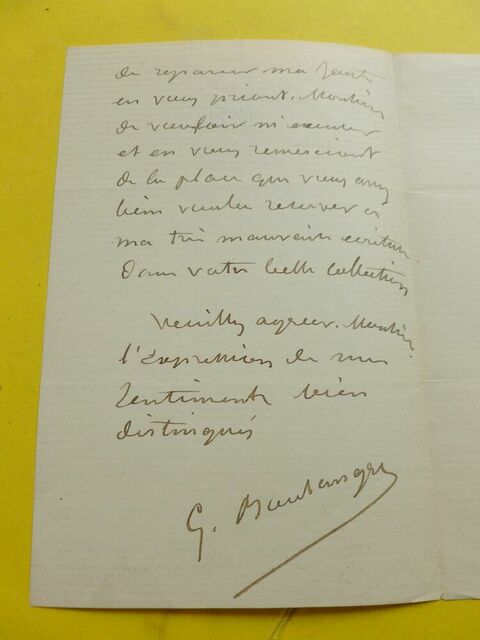 de reparer ma faute
en vous priant, Monsieur
de vouloir m'excuser
et en vous remerciant
de la place que vous avez
bien voulu reserver a
ma très mauvaise ecriture
dans votre belle collection
Veuillez agreer, Monsieur
l'Expression de mes
Sentiments bien
distingués
G. Boulanger